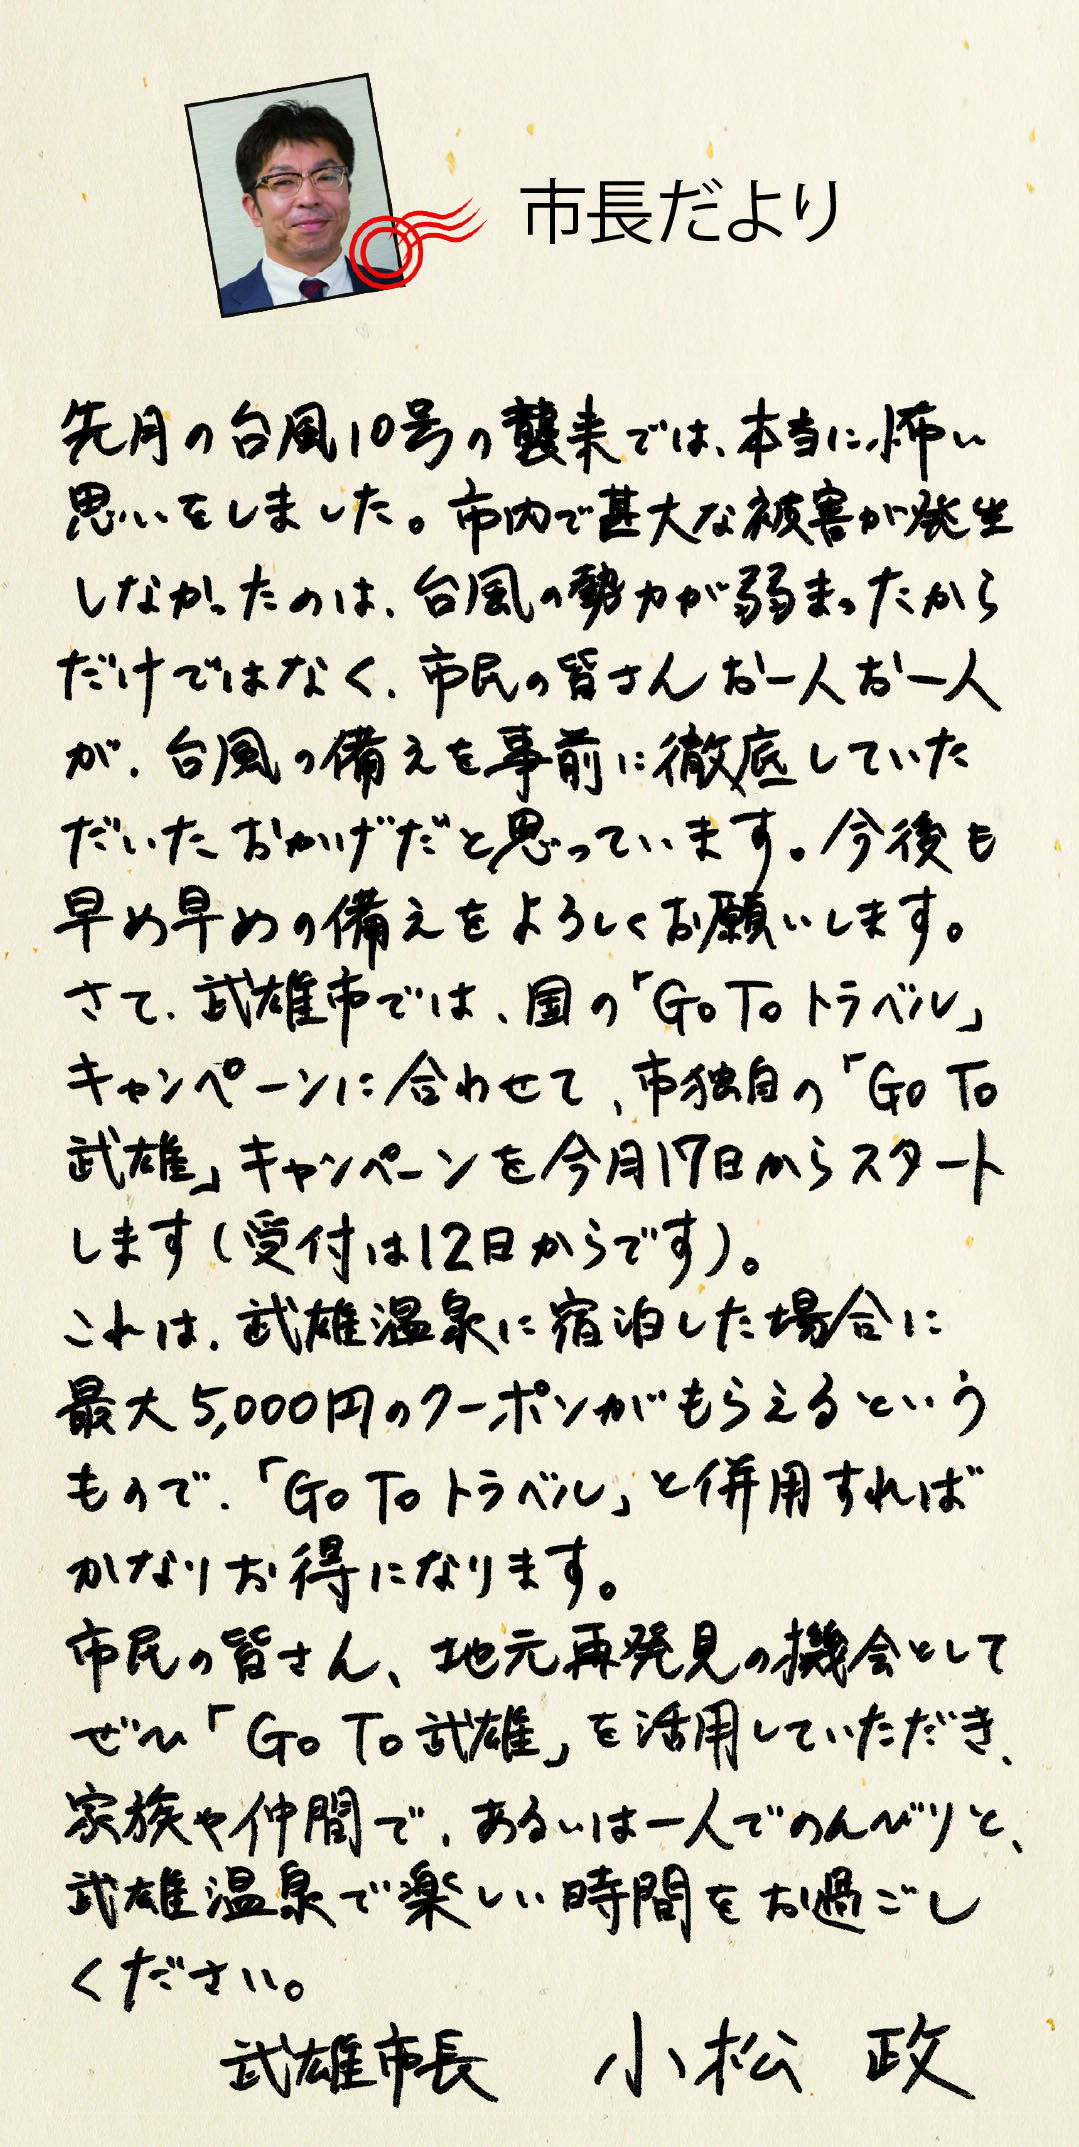 市長だより
先月の台風10号の襲来では、本当に怖い
思いをしました。市内で甚大な被害が発生
しなかったのは、台風の勢力が弱まったから
だけではなく、市民の皆さんお一人お一人
が、台風の備えを事前に徹底していた
だいたおかげだと思っています。今後も
早め早めの備えをよろしくお願いします。
さて、武雄市では、国の「Go To トラベル」
キャンペーンに合わせて、市独自の「Go To
武雄」キャンペーンを今月17日からスタート
します(受付は12日からです)。
これは、武雄温泉に宿泊した場合に
最大5,000円のクーポンがもらえるという
もので、「Go To トラベル」と併用すれば
かなりお得になります。
市民の皆さん、地元再発見の機会として
ぜひ「Go To 武雄」を活用していただき、
家族や仲間で、あるいは一人でのんびりと、
武雄温泉で楽しい時間をお過ごし
ください。
武雄市長 小松 政